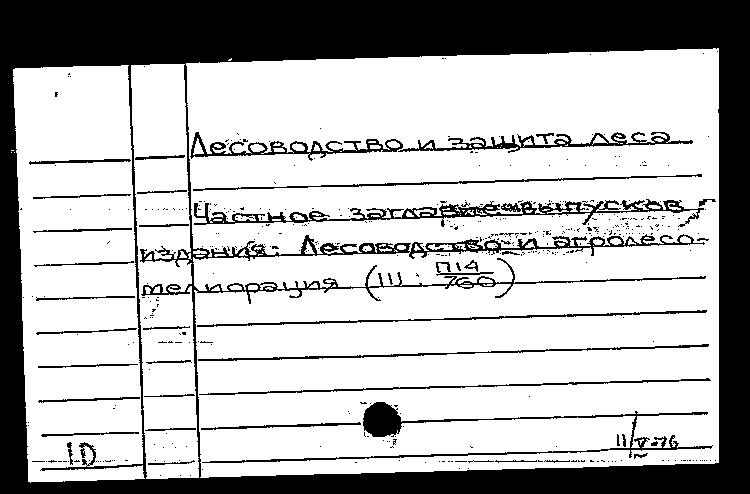 Лесоводство и защита леса
Частное заглавие выпусков
издания: Лесоводство и агролесо-
мелиорация (III : П14/760)
10
11/V-76